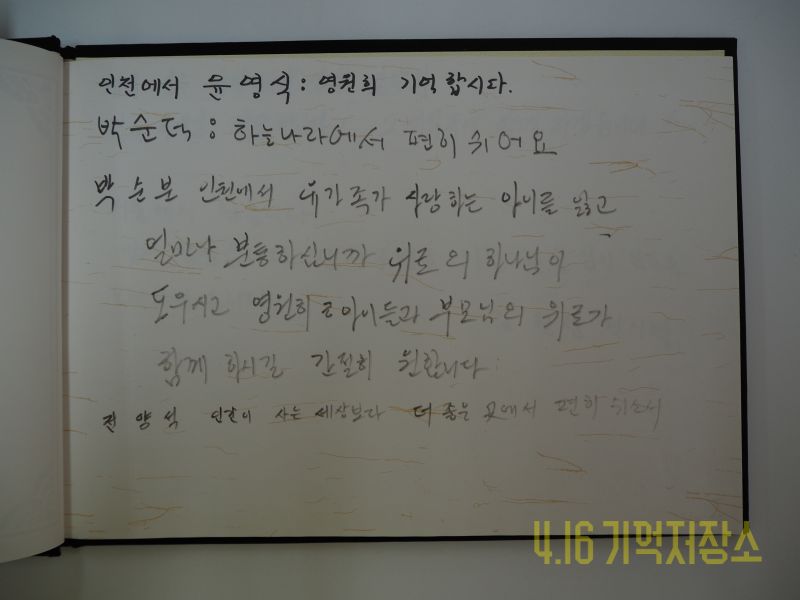 인천에서 윤영식: 영원히 기억합시다.
박순덕: 하늘나라에서 편히 쉬어요
박순분 인천에서 유가족가 사랑하는 아이를 잃고
얼마나 분통하십니까 위로의 하나님이
도우시고 영원히 아이들과 부모님의 위로가
함께 하시길 간절히 원합니다.
전양석 인간이 사는 세상보다 더 좋은 곳에서 편히 쉬소서
4.16 기억저장소